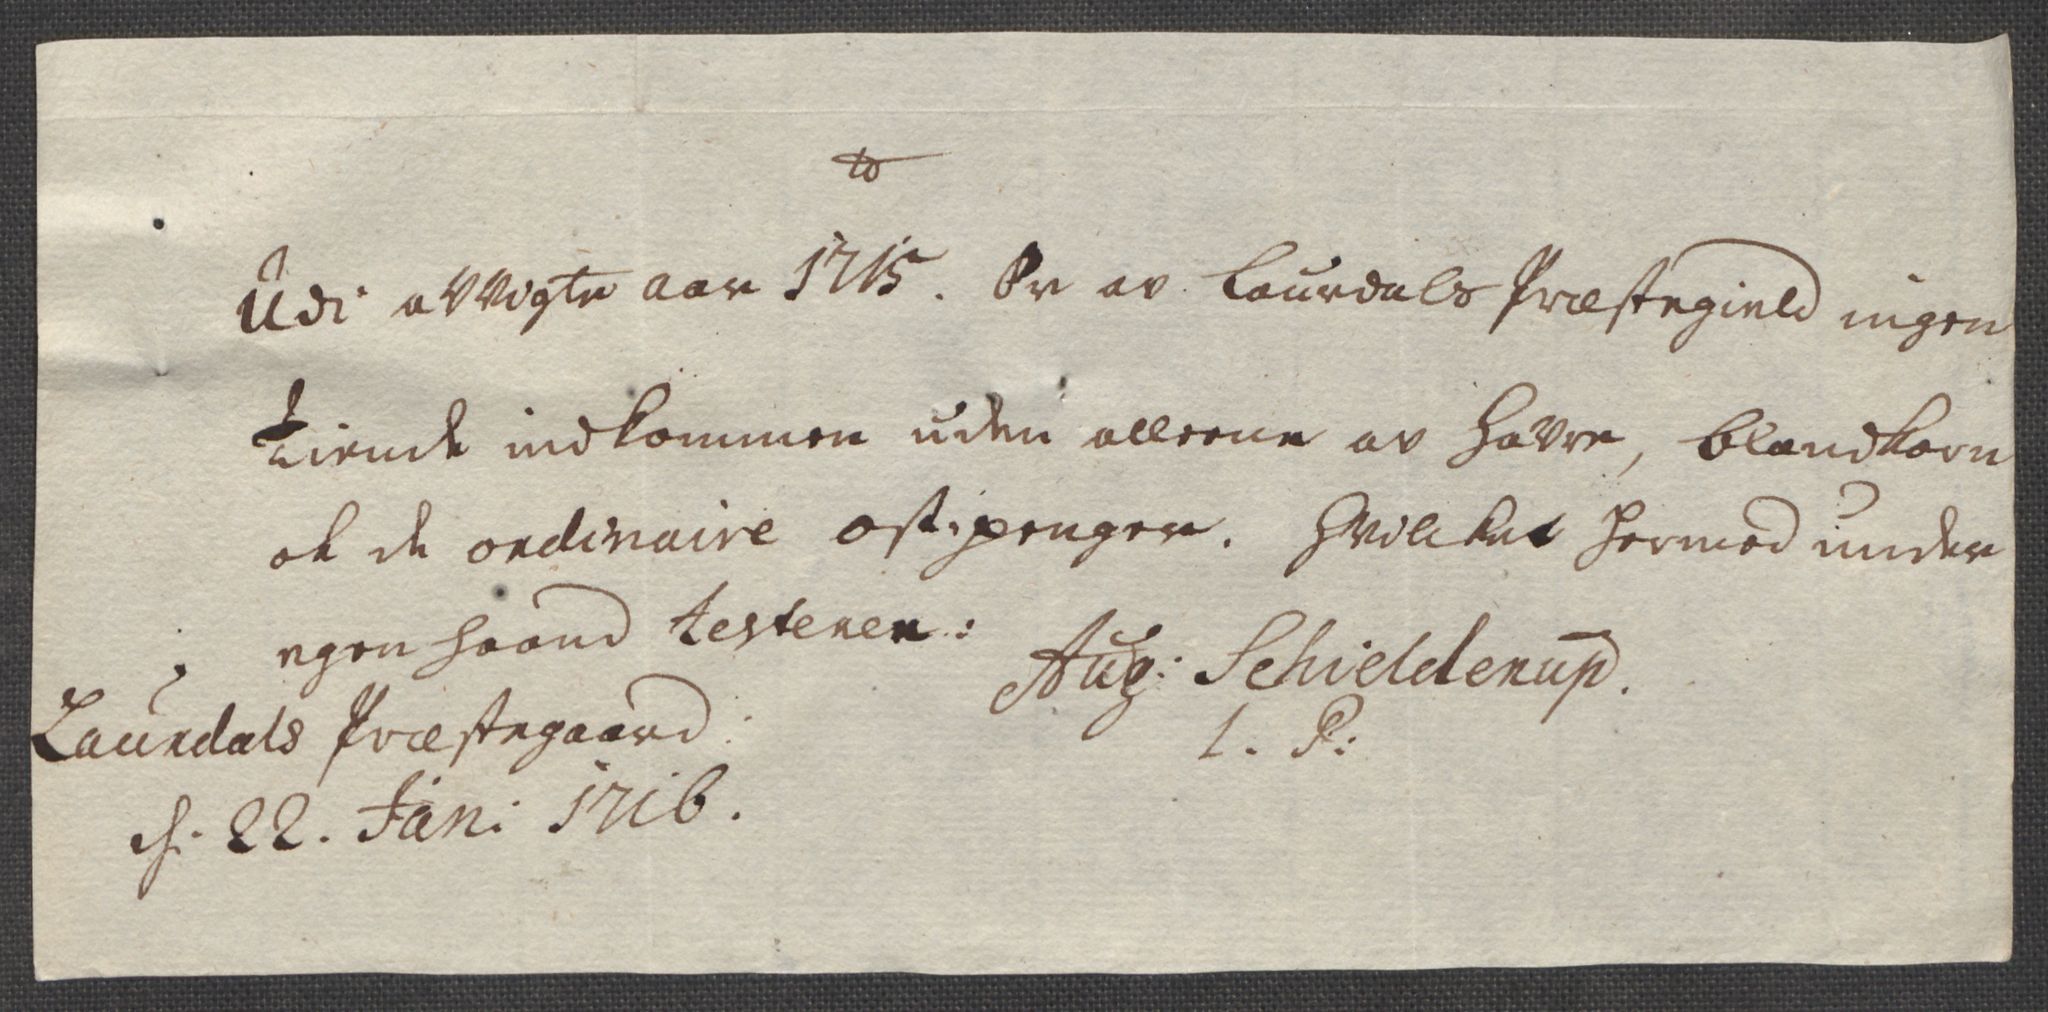 Udi avvigte aar 1715. Er av Laurdals Præstegield ingen
tiende indkommen uden alleene av Havre, blandkorn
ok de ordinaire ostepenger. Hvilcket hermed under
egen haand testerer:
Aug: Schielderup.
L. P:
Laurdals Præstegaard:
d. 22. Jan: 1716.